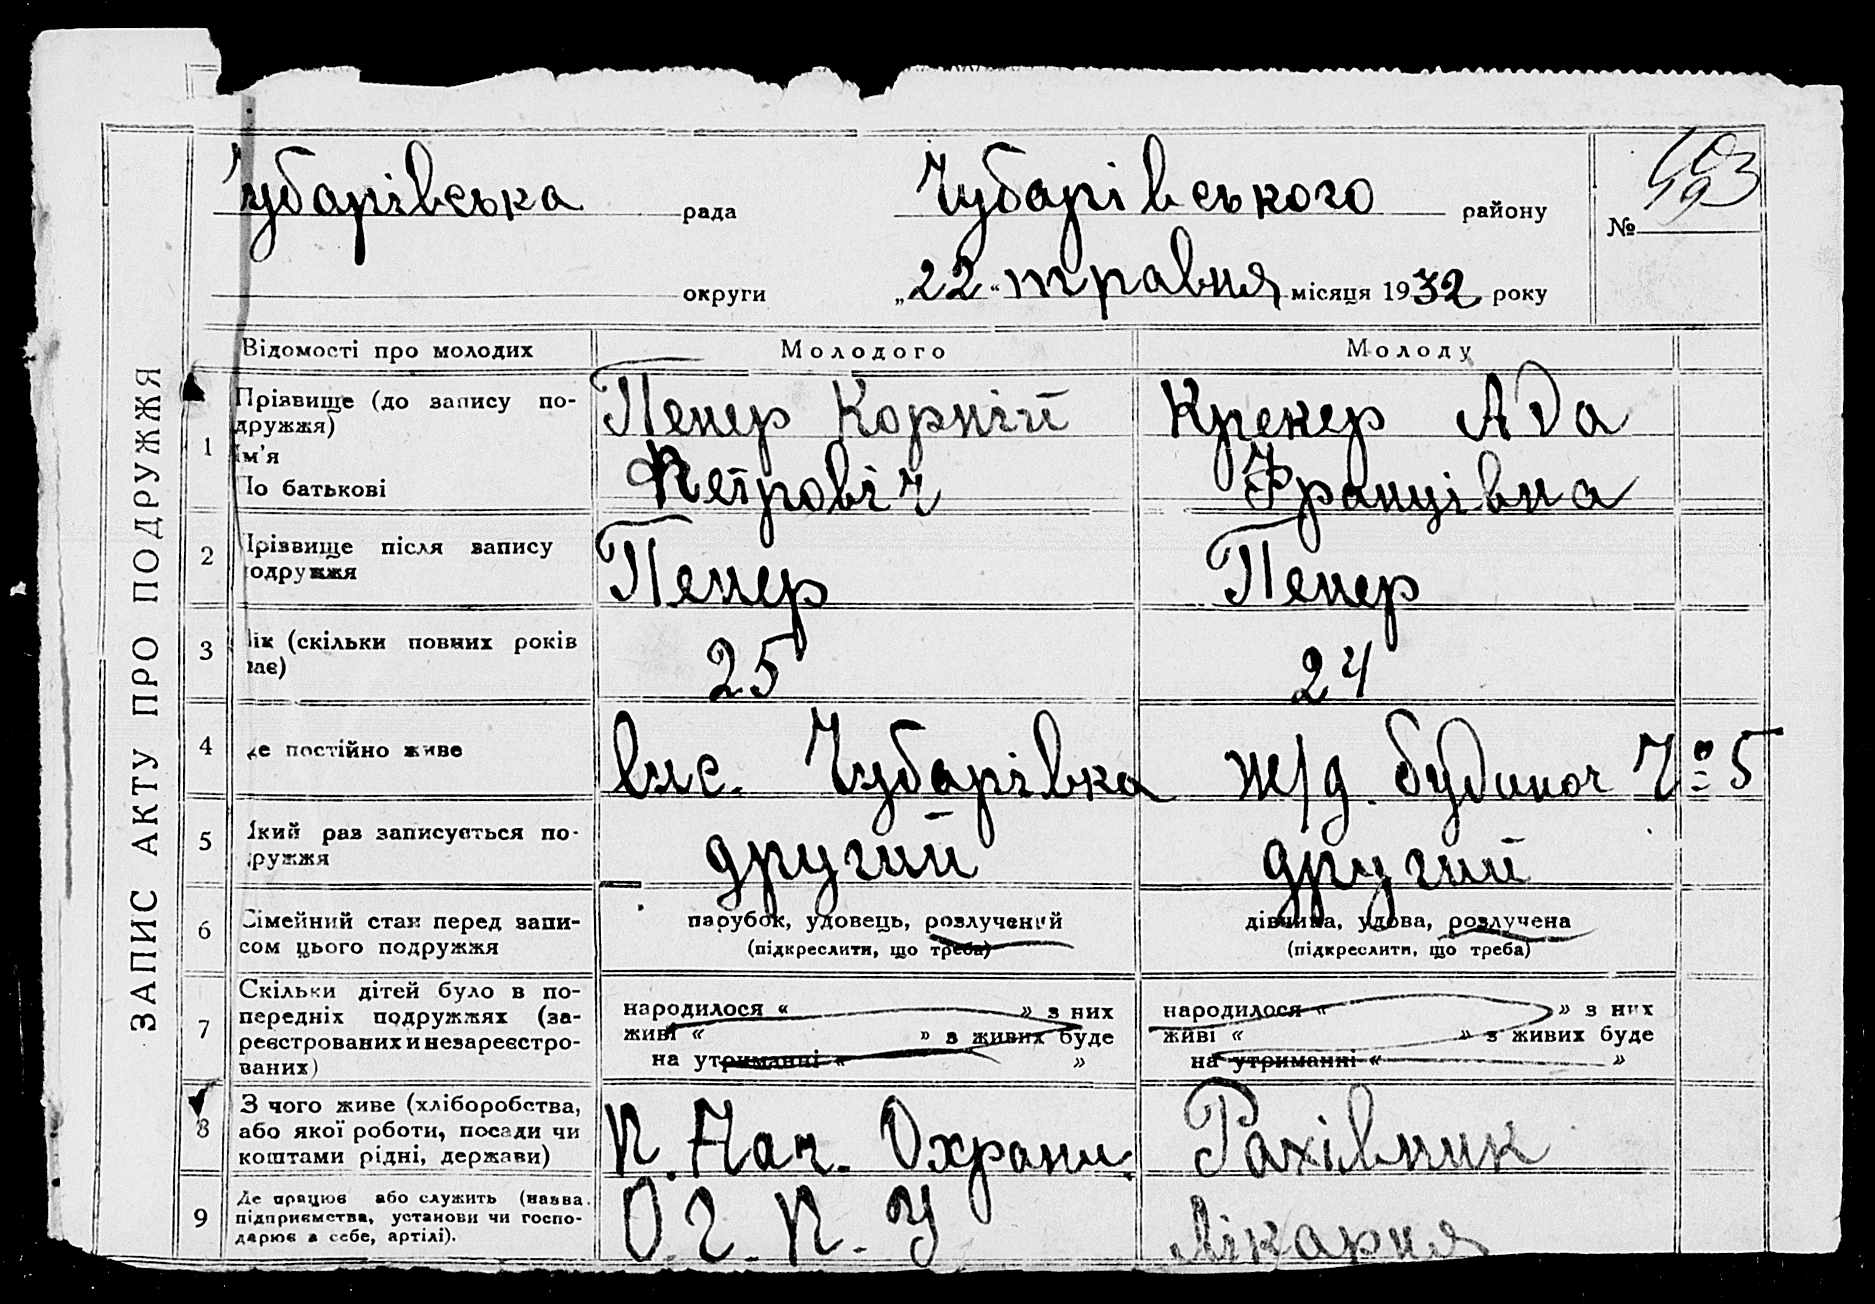 ЗАПИС АКТУ ПРО ПОДРУЖЖЯ
Чубарівська рада Чубарівського району №
округи „22“ травня місяця 1932 року
Відомості про молодих Молодого Молоду
1 Прізвище (до запису по-
дружжя)
Ім’я
По батькові
Пенер Корній
Петровіч
Крекер Ада
Францівна
2 Прізвище після запису
подружжя
Пенер Пенер
3 Вік (скільки повних років
має)
25 24
4 Де постійно живе вис. Чубарівка ж/д. будинок № 5
5 Який раз записується по-
дружжя
другий другий
6 Сімейний стан перед запи-
сом цього подружжя
парубок, удовець, розлучений
(підкреслити, що треба)
дівчина, удова, розлучена
(підкреслити, що треба)
7 Скільки дітей було в по-
передніх подружжях (за-
реєстрованих и незареєстро-
ваних)
народилося « » з них
живі « » з живих буде
на утриманні « »
народилося « » з них
живі « » з живих буде
на утриманні « »
8 З чого живе (хліборобства,
або якої роботи, посади чи
коштами рідні, держави)
П. Нач. Охрани. Рахівник
9 Де працює або служить (назва
підприємства, установи чи госпо-
дарює в себе, артілі).
О. Г. П. У Лікарня